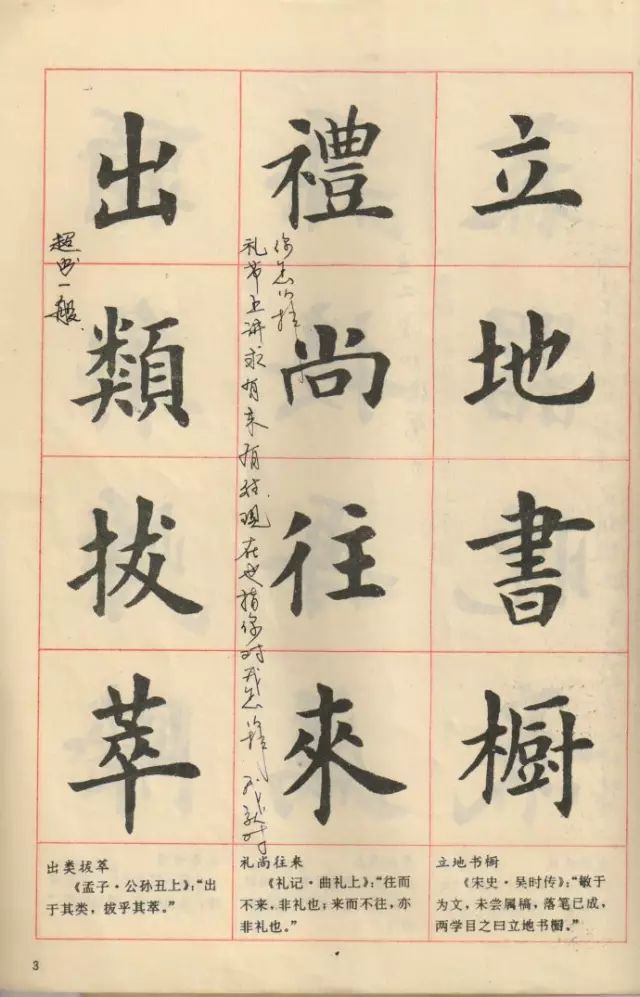 立地書橱
禮尚往來
礼节上讲求有来有往现在也指你对我怎 我就对
你怎
出類拔萃
超出一般
出类拔萃
《孟子·公孙丑上》：“出
于其类，拔乎其萃。”
礼尚往来
《礼记·曲礼上》：“往而
不来，非礼也；来而不往，亦
非礼也。”
立地书橱
《宋史·吴时传》：“敏于
为文，未尝属稿，落笔已成，
两学目之曰立地书橱。”
3